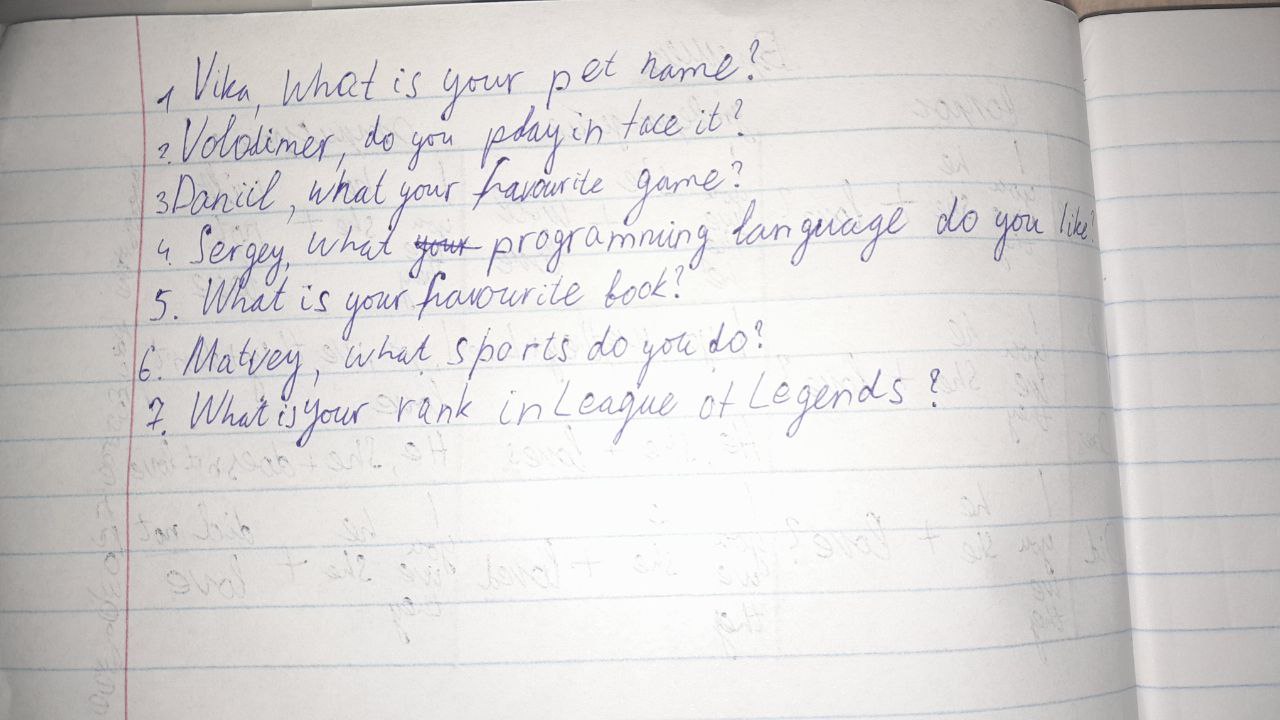 1 Vika, What is your pet name?
2. Volodimer, do you play in face it?
3 Daniil, what your favourite game?
4. Sergey, what your programming language do you like?
5. What is your favourite book?
6. Matvey, what sports do you do?
7. What is your rank in League of Legends?